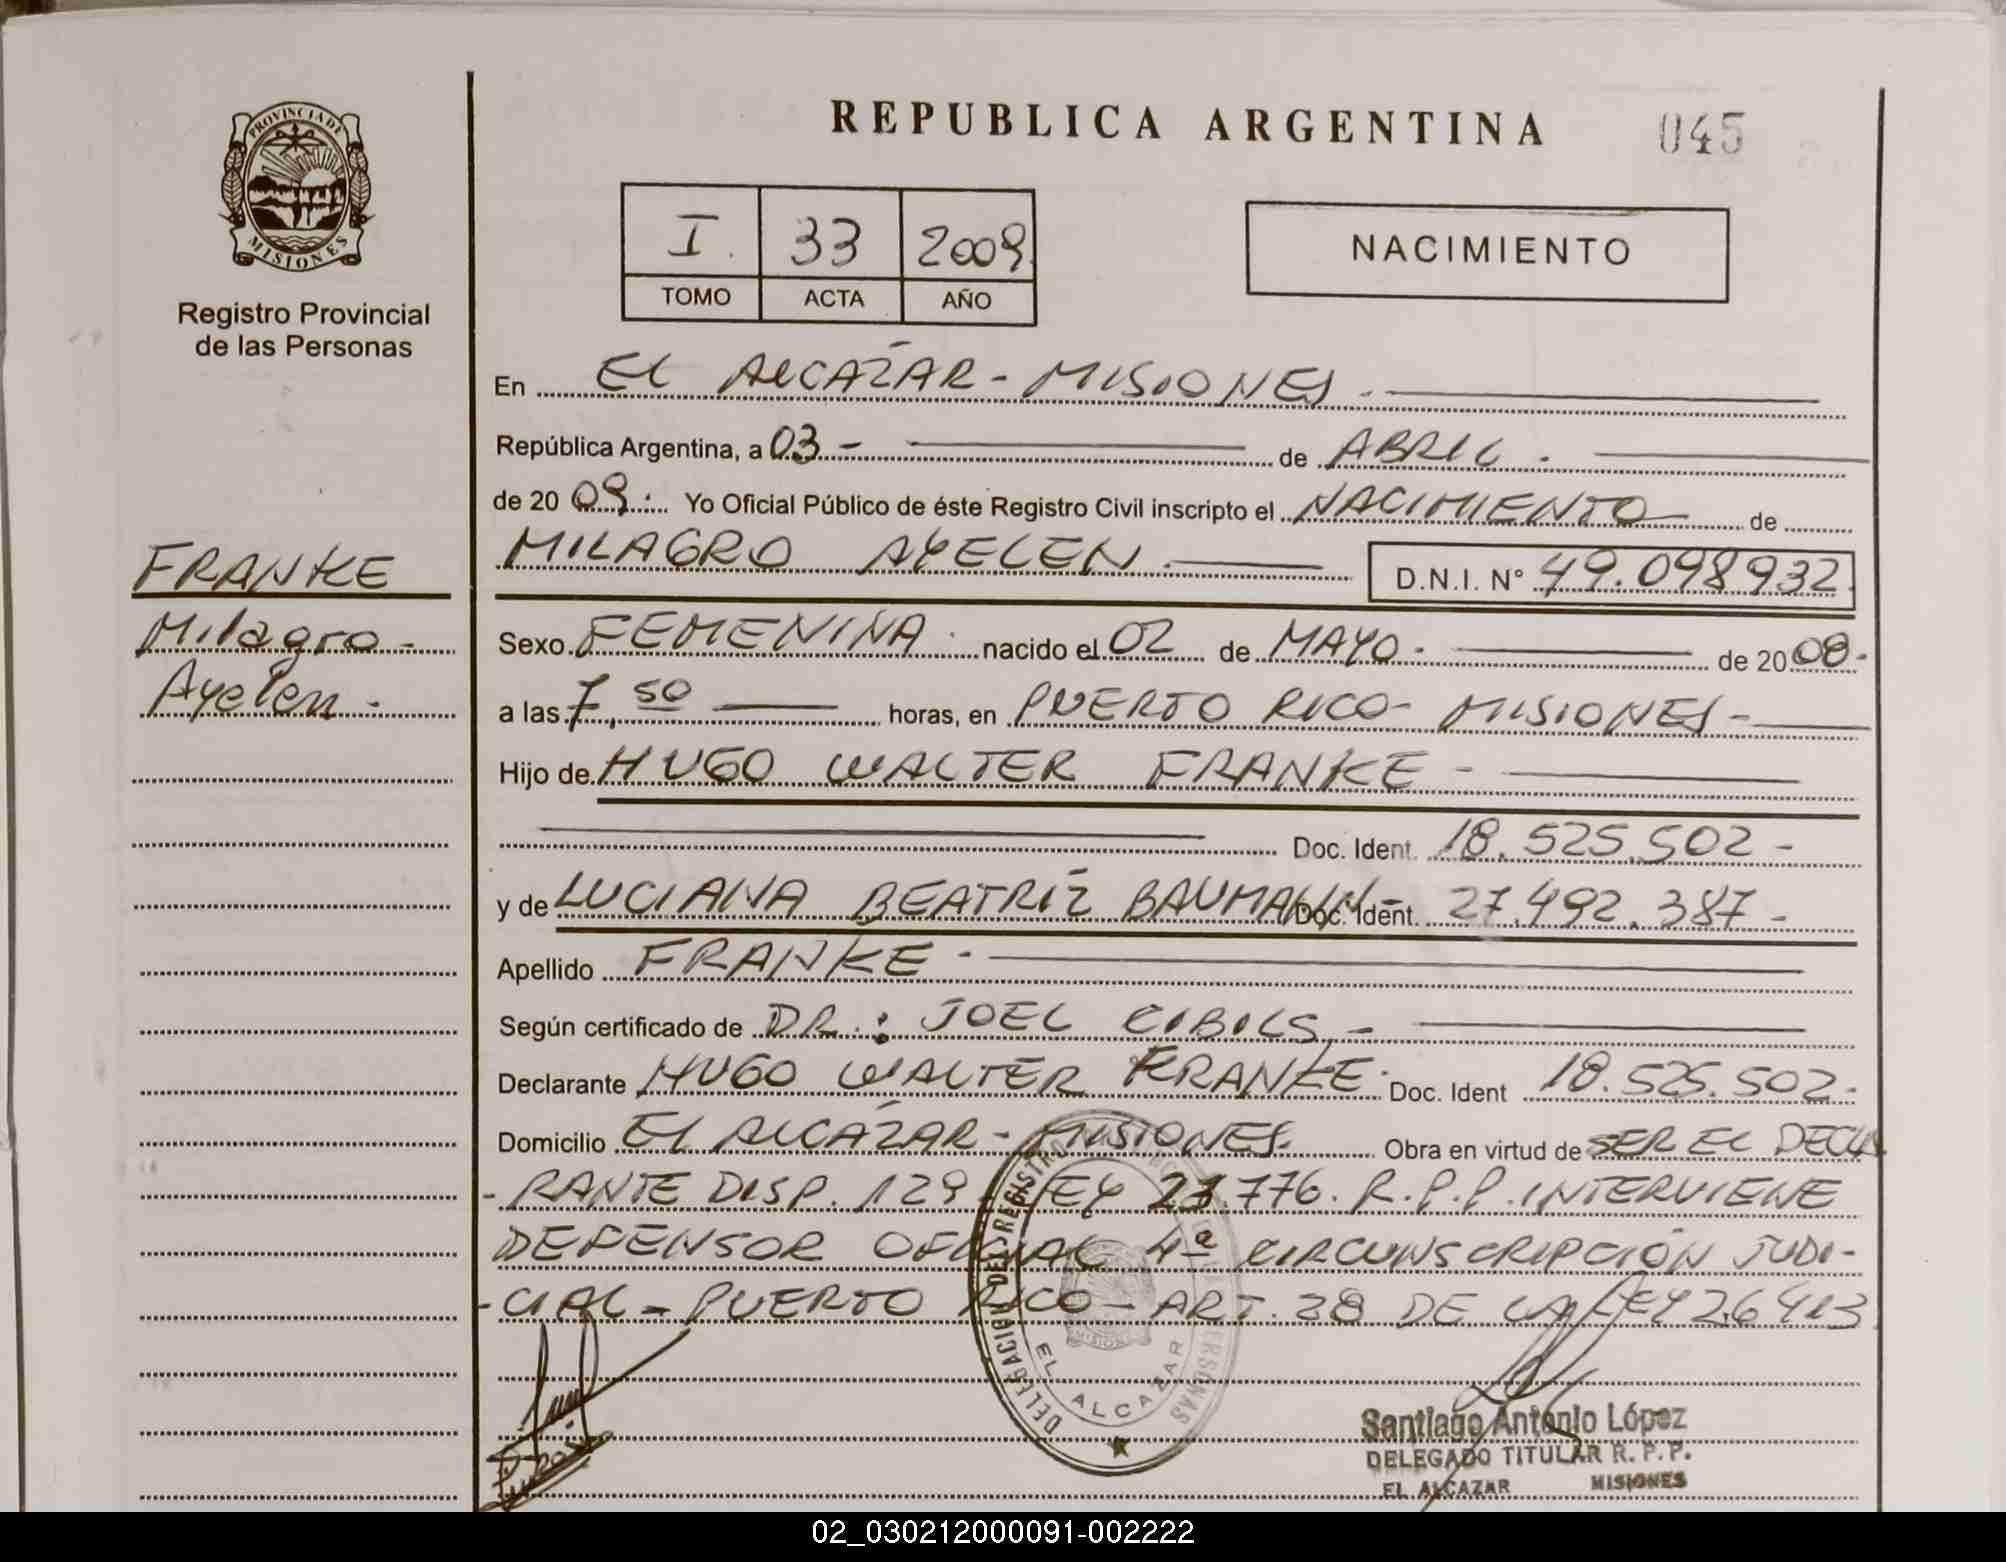 REPUBLICA ARGENTINA
045
PROVINCIA DE MISIONES
Registro Provincial
de las Personas
I. 33 2009.
TOMO ACTA AÑO
NACIMIENTO
En EL ALCAZAR - MISIONES.
República Argentina, a 03 - de ABRIL.
de 20 09. Yo Oficial Público de éste Registro Civil inscripto el NACIMIENTO de
FRANKE
MILAGRO AYELEN. D.N.I. N° 49.098932
Milagro -
Sexo FEMENINA. nacido el 02 de MAYO. de 20 08.
Ayelen.
a las 7,50 horas, en PUERTO RICO - MISIONES -
Hijo de HUGO WALTER FRANKE -
Doc. Ident. 18.525.502 -
y de LUCIANA BEATRIZ BAUMANN - Doc. Ident. 27.492.387 -
Apellido FRANKE -
Según certificado de DR.: JOEL CIBILS, -
Declarante HUGO WALTER FRANKE. Doc. Ident 18.525.502.
Domicilio EL ALCAZAR - MISIONES. Obra en virtud de SER EL DECLA
- RANTE DISP. 129 LEY 23776. R.P.P. INTERVIENE
DEFENSOR OFICIAL 4ª CIRCUNSCRIPCIÓN JUDI-
- CIAL - PUERTO RICO - ART. 38 DE LA LEY 26413
DELEGACION DEL REGISTRO PERSONAS
EL ALCAZAR
MISIONES
Santiago Antonio López
DELEGADO TITULAR R. P. P.
EL ALCAZAR MISIONES
02_030212000091-002222